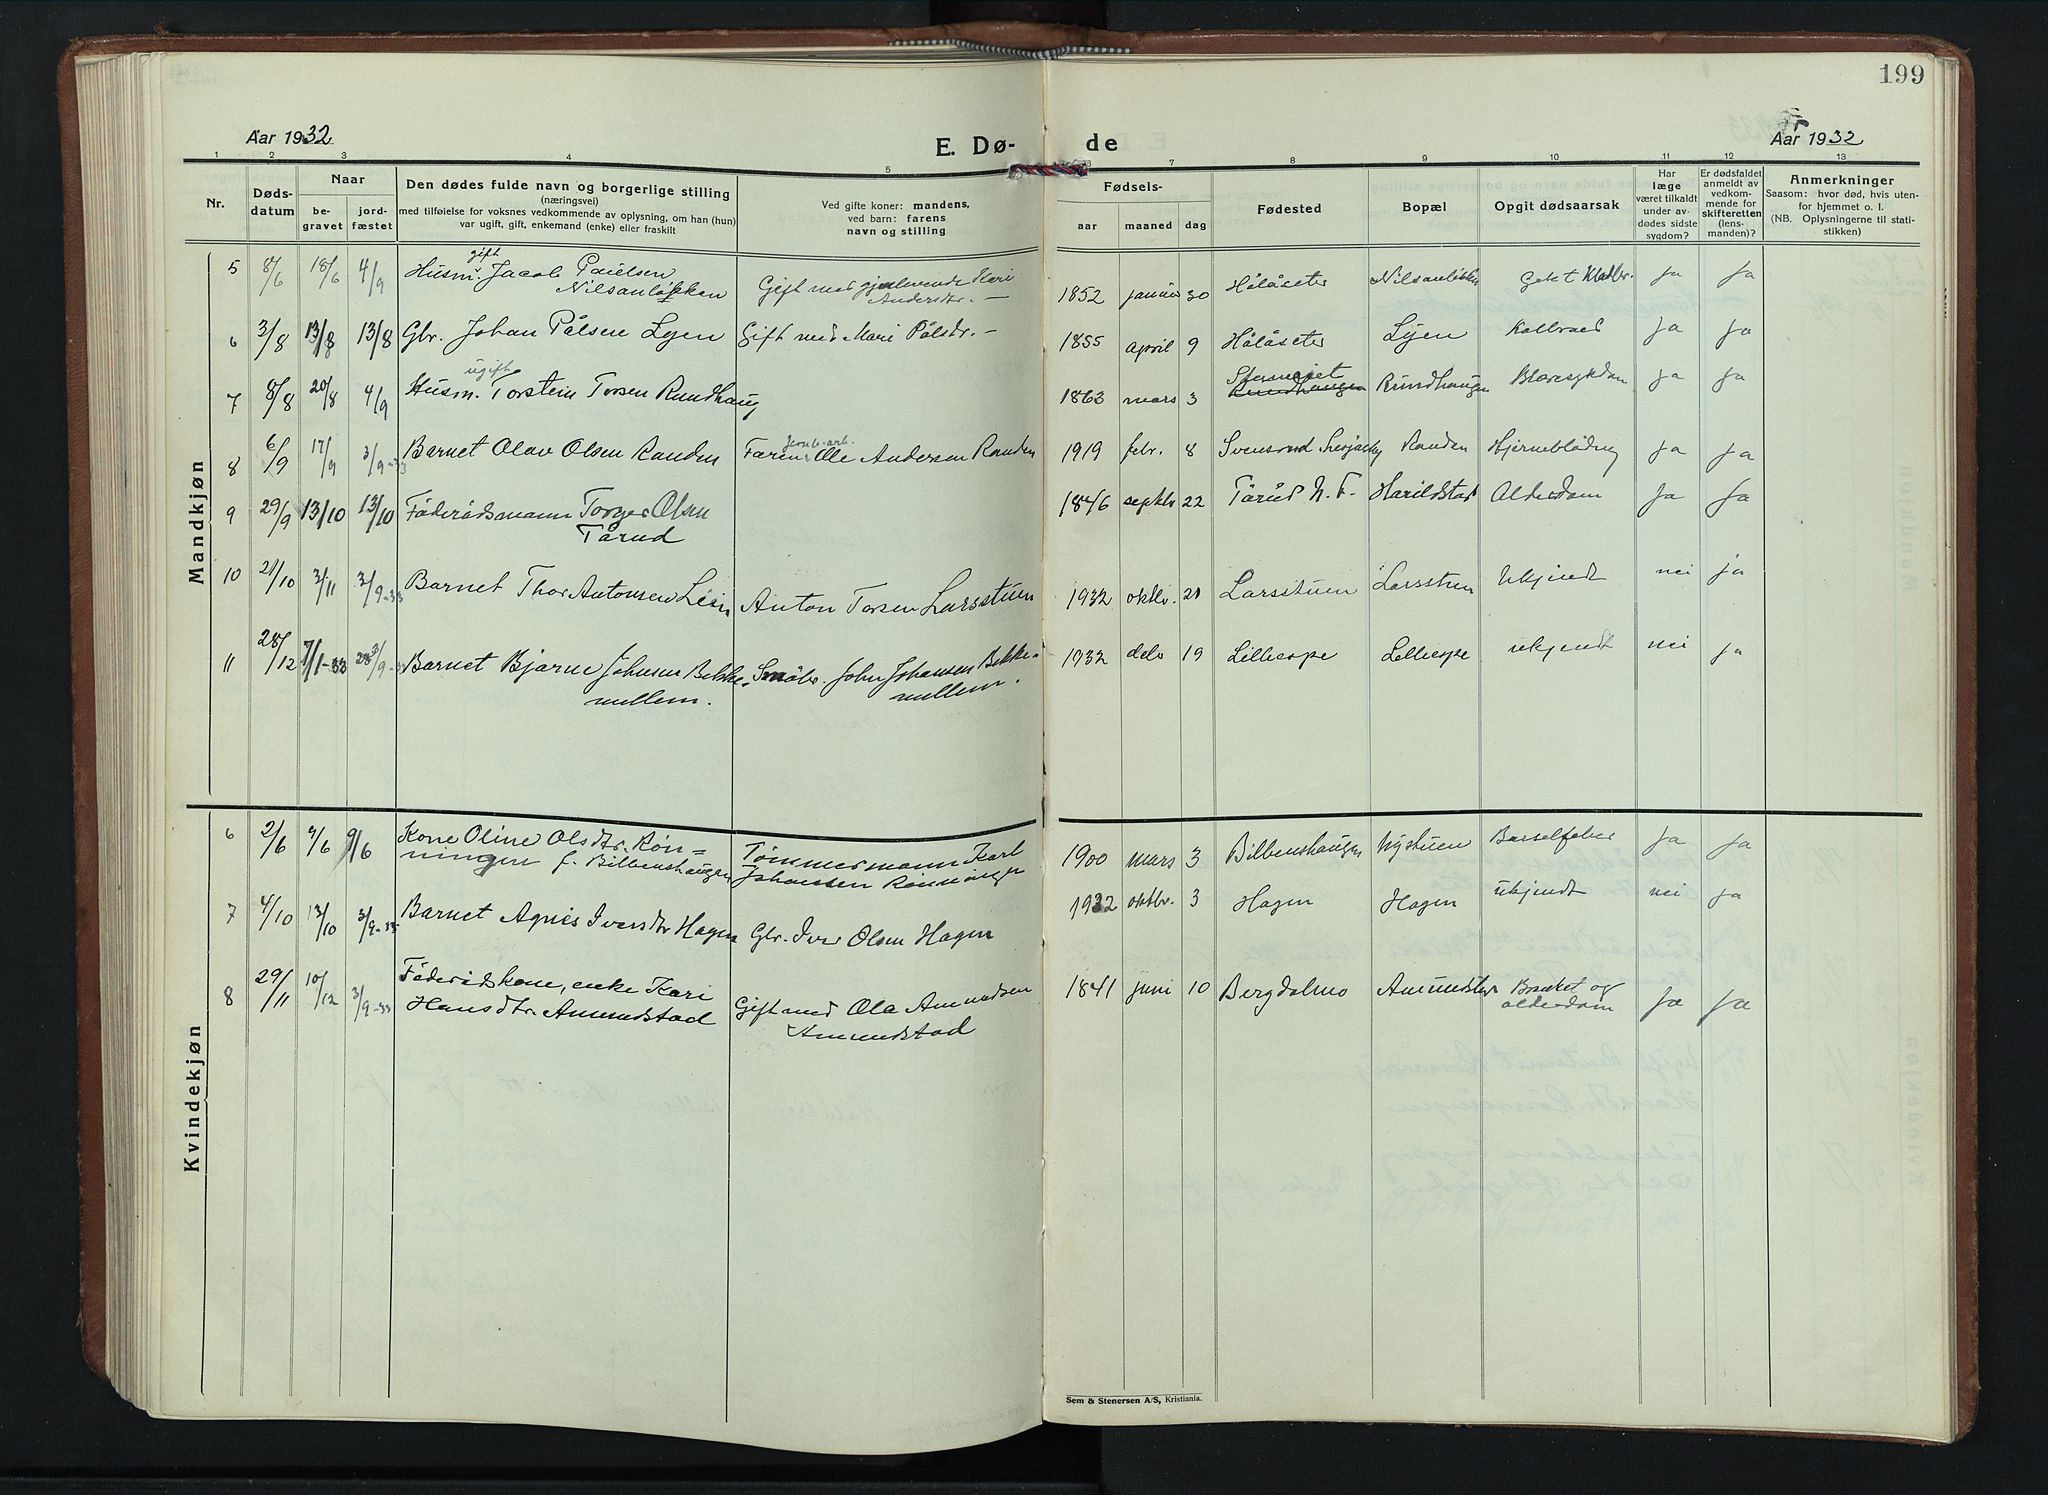 199
Aar 1932
E. Dø-
de
Aar 1932
1 2 3 4 5 6 7 8 9 10 11 12 13
Nr.
Døds-
datum
Naar
be-
gravet
jord-
fæstet
Den dødes fulde navn og borgerlige stilling
(næringsvei)
med tilføielse for voksnes vedkommende av oplysning, om han (hun)
var ugift, gift, enkemand (enke) eller fraskilt
Ved gifte koner: mandens,
ved barn: farens
navn og stilling
Fødsels-
aar maaned dag
Fødested
Bopæl
Opgit dødsaarsak
Har
læge
været tilkaldt
under av-
dødes sidste
sygdom?
Er dødsfaldet
anmeldt av
vedkom-
mende for
skifteretten
(lens-
manden)?
Anmerkninger
Saasom: hvor død, hvis uten-
for hjemmet o. l.
(NB. Oplysningerne til stati-
stikken)
Mandkjøn
gift
5 8/6 18/6 4/9 Husm. Jacob Paulsen Gift med gjenlevende Kari 1852 januar 30 Hålåseter ja ja
Nilsanløkken Anderstr. —
6 3/8 13/8 13/8 Gbr. Johan Pålsen Lyen Gift med Mari Pålsdr. — 1855 april 9 Hålåseter Lyen ja ja
ugift
7 8/8 20/8 4/9 Husm. Torstein Torsen Rundhaug 1863 mars 3 Rundhaugen Rundhaugen ja ja
8 6/9 17/9 3/9-33 Barnet Olav Olsen Randen Faren Ole Andersen Randen 1919 febr. 8 Randen Hjerneblødng ja ja
9 29/9 13/10 13/10 Føderådsmann Torger Olsen 1846 septbr 22 Tårud N. F. Harildstad Alderdom ja ja
Tårud
10 21/10 3/11 3/9-33 Barnet Thor Antonsen Anton Torsen Larsstuen 1932 oktbr. 21 Larsstuen Larsstuen Ukjendt nei ja
11 28/12 7/1-33 3/9-33 Barnet Bjarne Johnsen Bekke- Småbr. John Johansen Bekke- 1932 19 Lilleespe Lilleespe ukjendt nei ja
mellem. mellem.
Kvindekjøn
6 2/6 9/6 9/6 Kone Oline Olsdtr. Røn- Tømmermann Karl 1900 mars 3 Bilbenshaugen Nystuen Barselfeber ja ja
ningen f. Bilbenshaugen Johansen Rønningen
7 4/10 13/10 3/9-33 Barnet Agnes Iversdtr Hagen Gbr. Iver Olsen Hagen 1932 oktbr. 3 Hagen Hagen ukjendt nei ja
8 29/11 10/12 3/9-33 Føderådskone, enke Kari Gift med Ola Amundsen 1841 juni 10 Bergdalmo Amundstad Brukket og ja ja
Hansdtr. Amundstad Amundstad alderdom
Sem & Stenersen A/S, Kristiania.